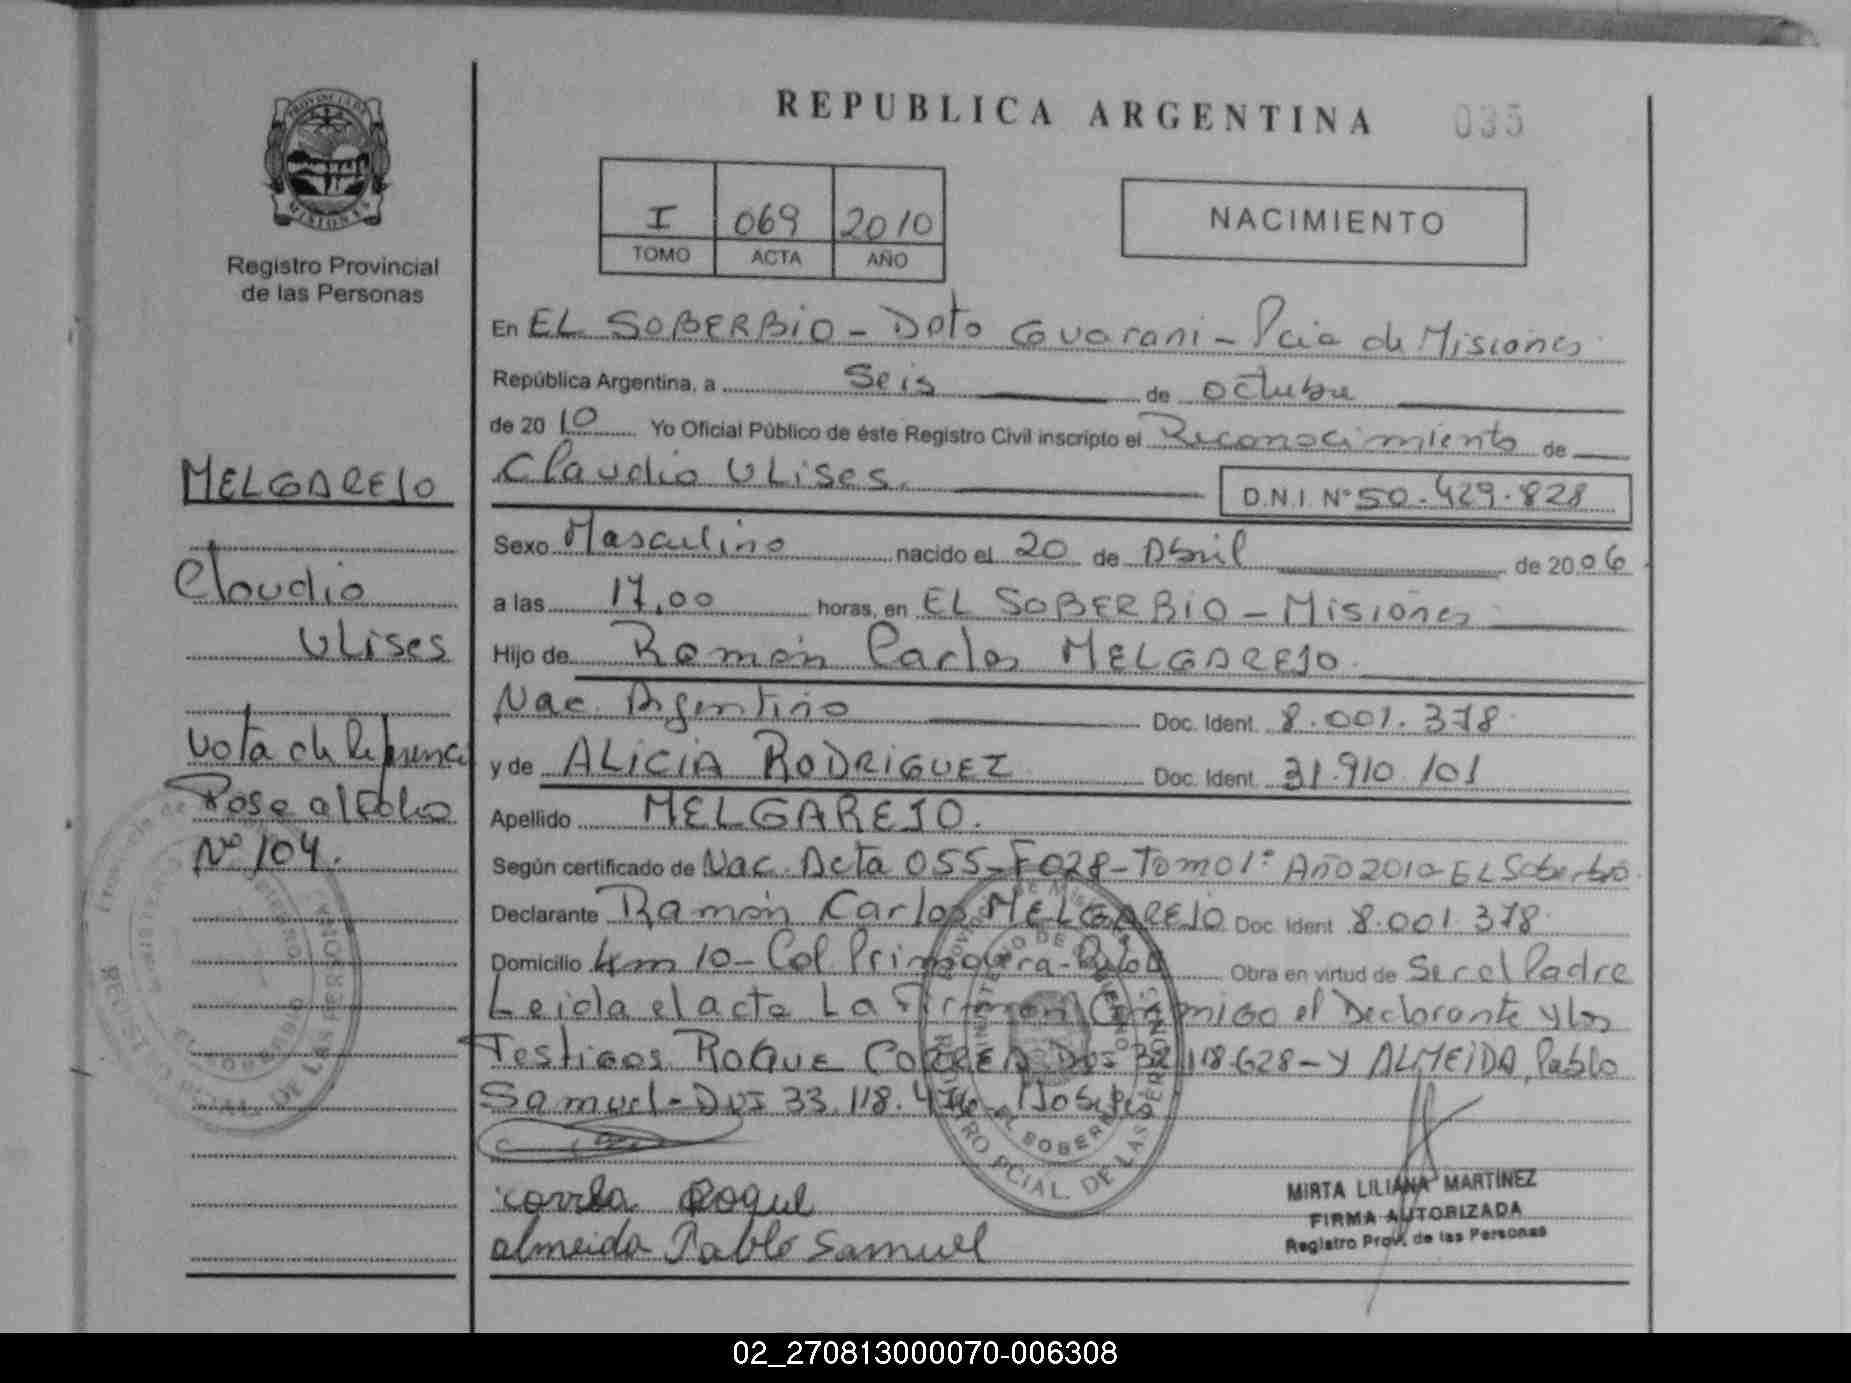 REPUBLICA ARGENTINA 035
PROVINCIA DE
MISIONES
Registro Provincial
de las Personas
I 069 2010
TOMO ACTA AÑO
NACIMIENTO
En EL SOBERBIO - Dpto Guarani - Pcia de Misiones
República Argentina, a Seis de octubre
de 2010 Yo Oficial Público de éste Registro Civil inscripto el Reconocimiento de
Claudio Ulises. D.N.I. N° 50.429.828
Sexo Masculino nacido el 20 de Abril de 2006
a las 17,00 horas, en EL SOBERBIO - Misiones
Hijo de Ramón Carlos MELGAREJO.
Nac. Argentino Doc. Ident. 8.001.378.
y de ALICIA RODRIGUEZ Doc. Ident. 31.910.101
Apellido MELGAREJO.
Según certificado de Nac. Acta 055-F028-Tomo 1° Año 2010-EL Soberbio.
Declarante Ramón Carlos MELGAREJO Doc. Ident 8.001.378.
Domicilio Km 10 - Col Primavera Obra en virtud de Ser el Padre
Leida el acta La Firman Conmigo el Declarante y los
Testigos ROQUE CORREA DNI 32.118.628 - y ALMEIDA, Pablo
Samuel - DNI 33.118.
correa Roque
almeida Pablo Samuel
MIRTA LILIANA MARTÍNEZ
FIRMA AUTORIZADA
Registro Prov. de las Personas
MELGAREJO
Claudio
Ulises
Nota de Referencia
Pose al Folio
N° 104.
02_270813000070-006308